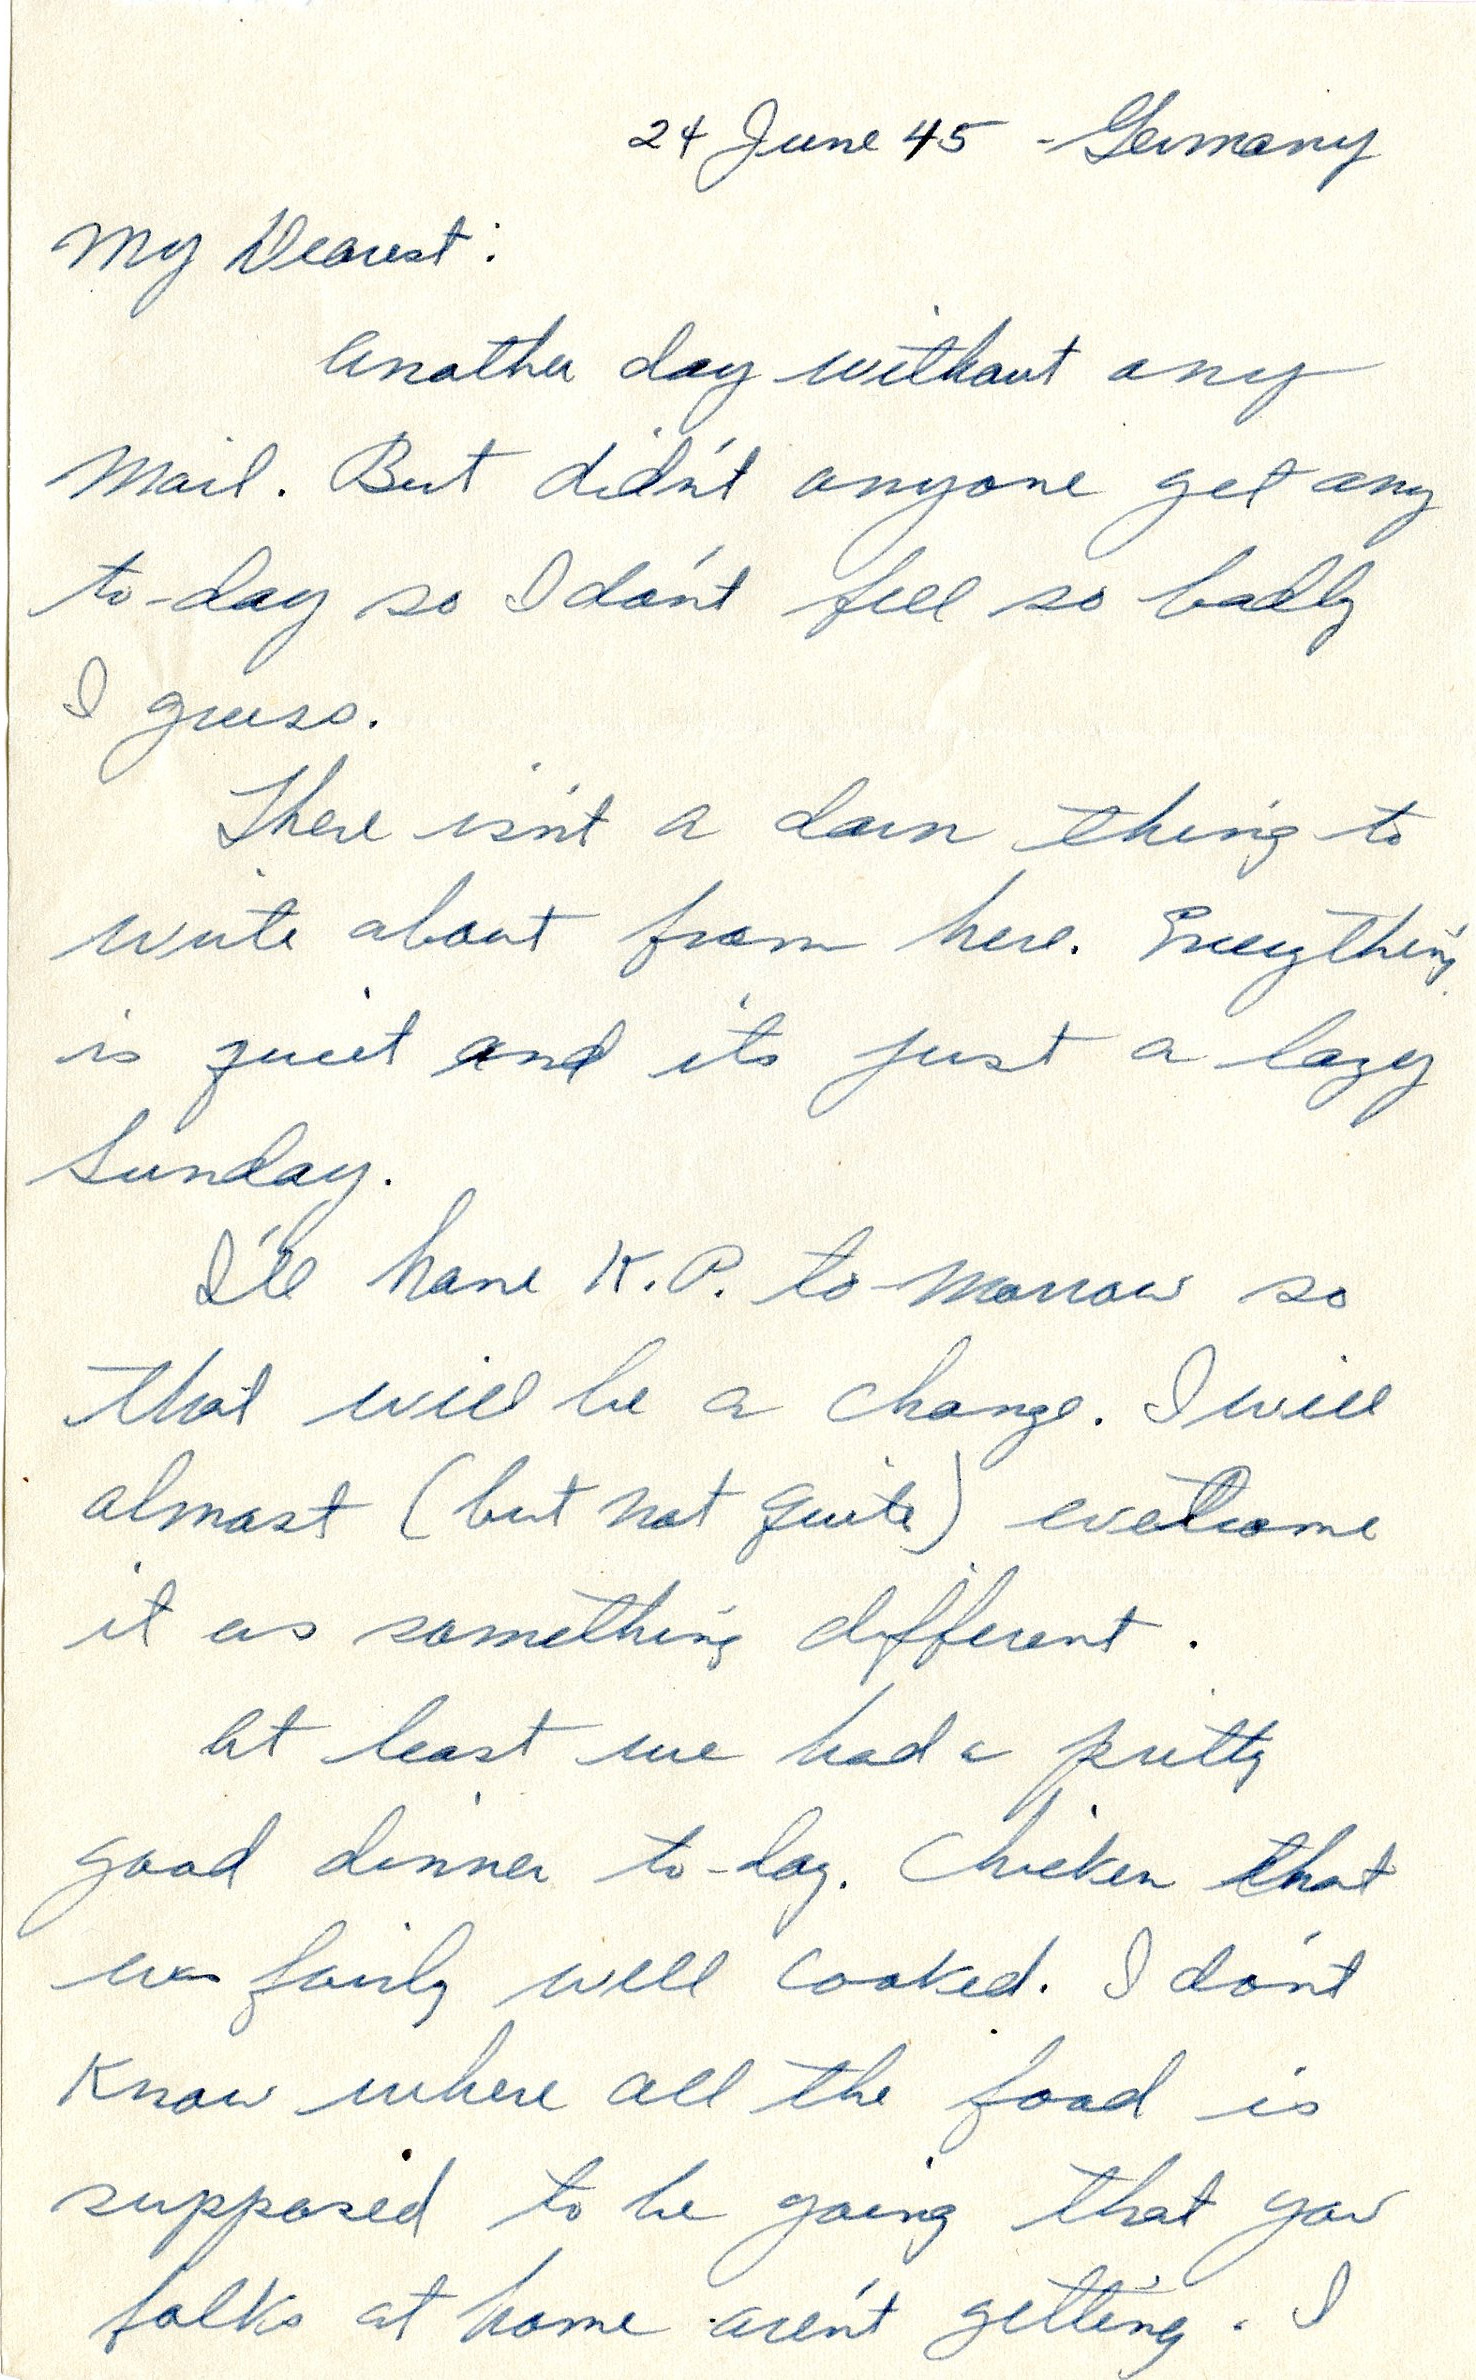 24 June 45 - Germany
My Dearest:
Another day without any
mail. But didn't anyone get any
to-day so I don't feel so badly
I guess.
There isn't a darn thing to
write about from here. Everything
is quiet and it's just a lazy
Sunday.
I'll have K.P. to-morrow so
that will be a change. I will
almost (but not quite) welcome
it as something different.
At least we had a pretty
good dinner to-day. Chicken that
was fairly well cooked. I don't
know where all the food is
supposed to be going that you
folks at home aren't getting. I